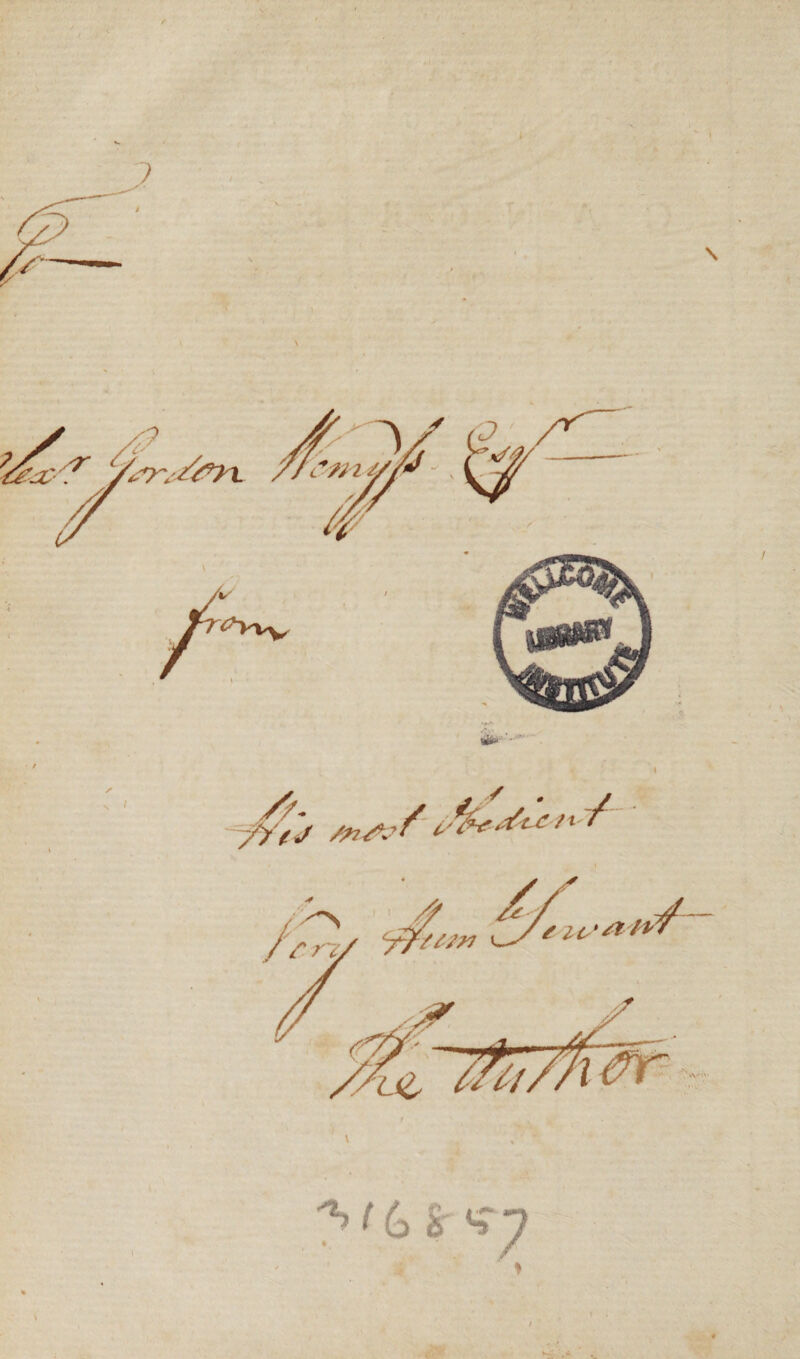 To
lexr Gordon Wemyſs Esqr
from
WELLCOME
LIBRARY
INSTITUTE
His most Obedient
Very Humle Servant
The Author
316857